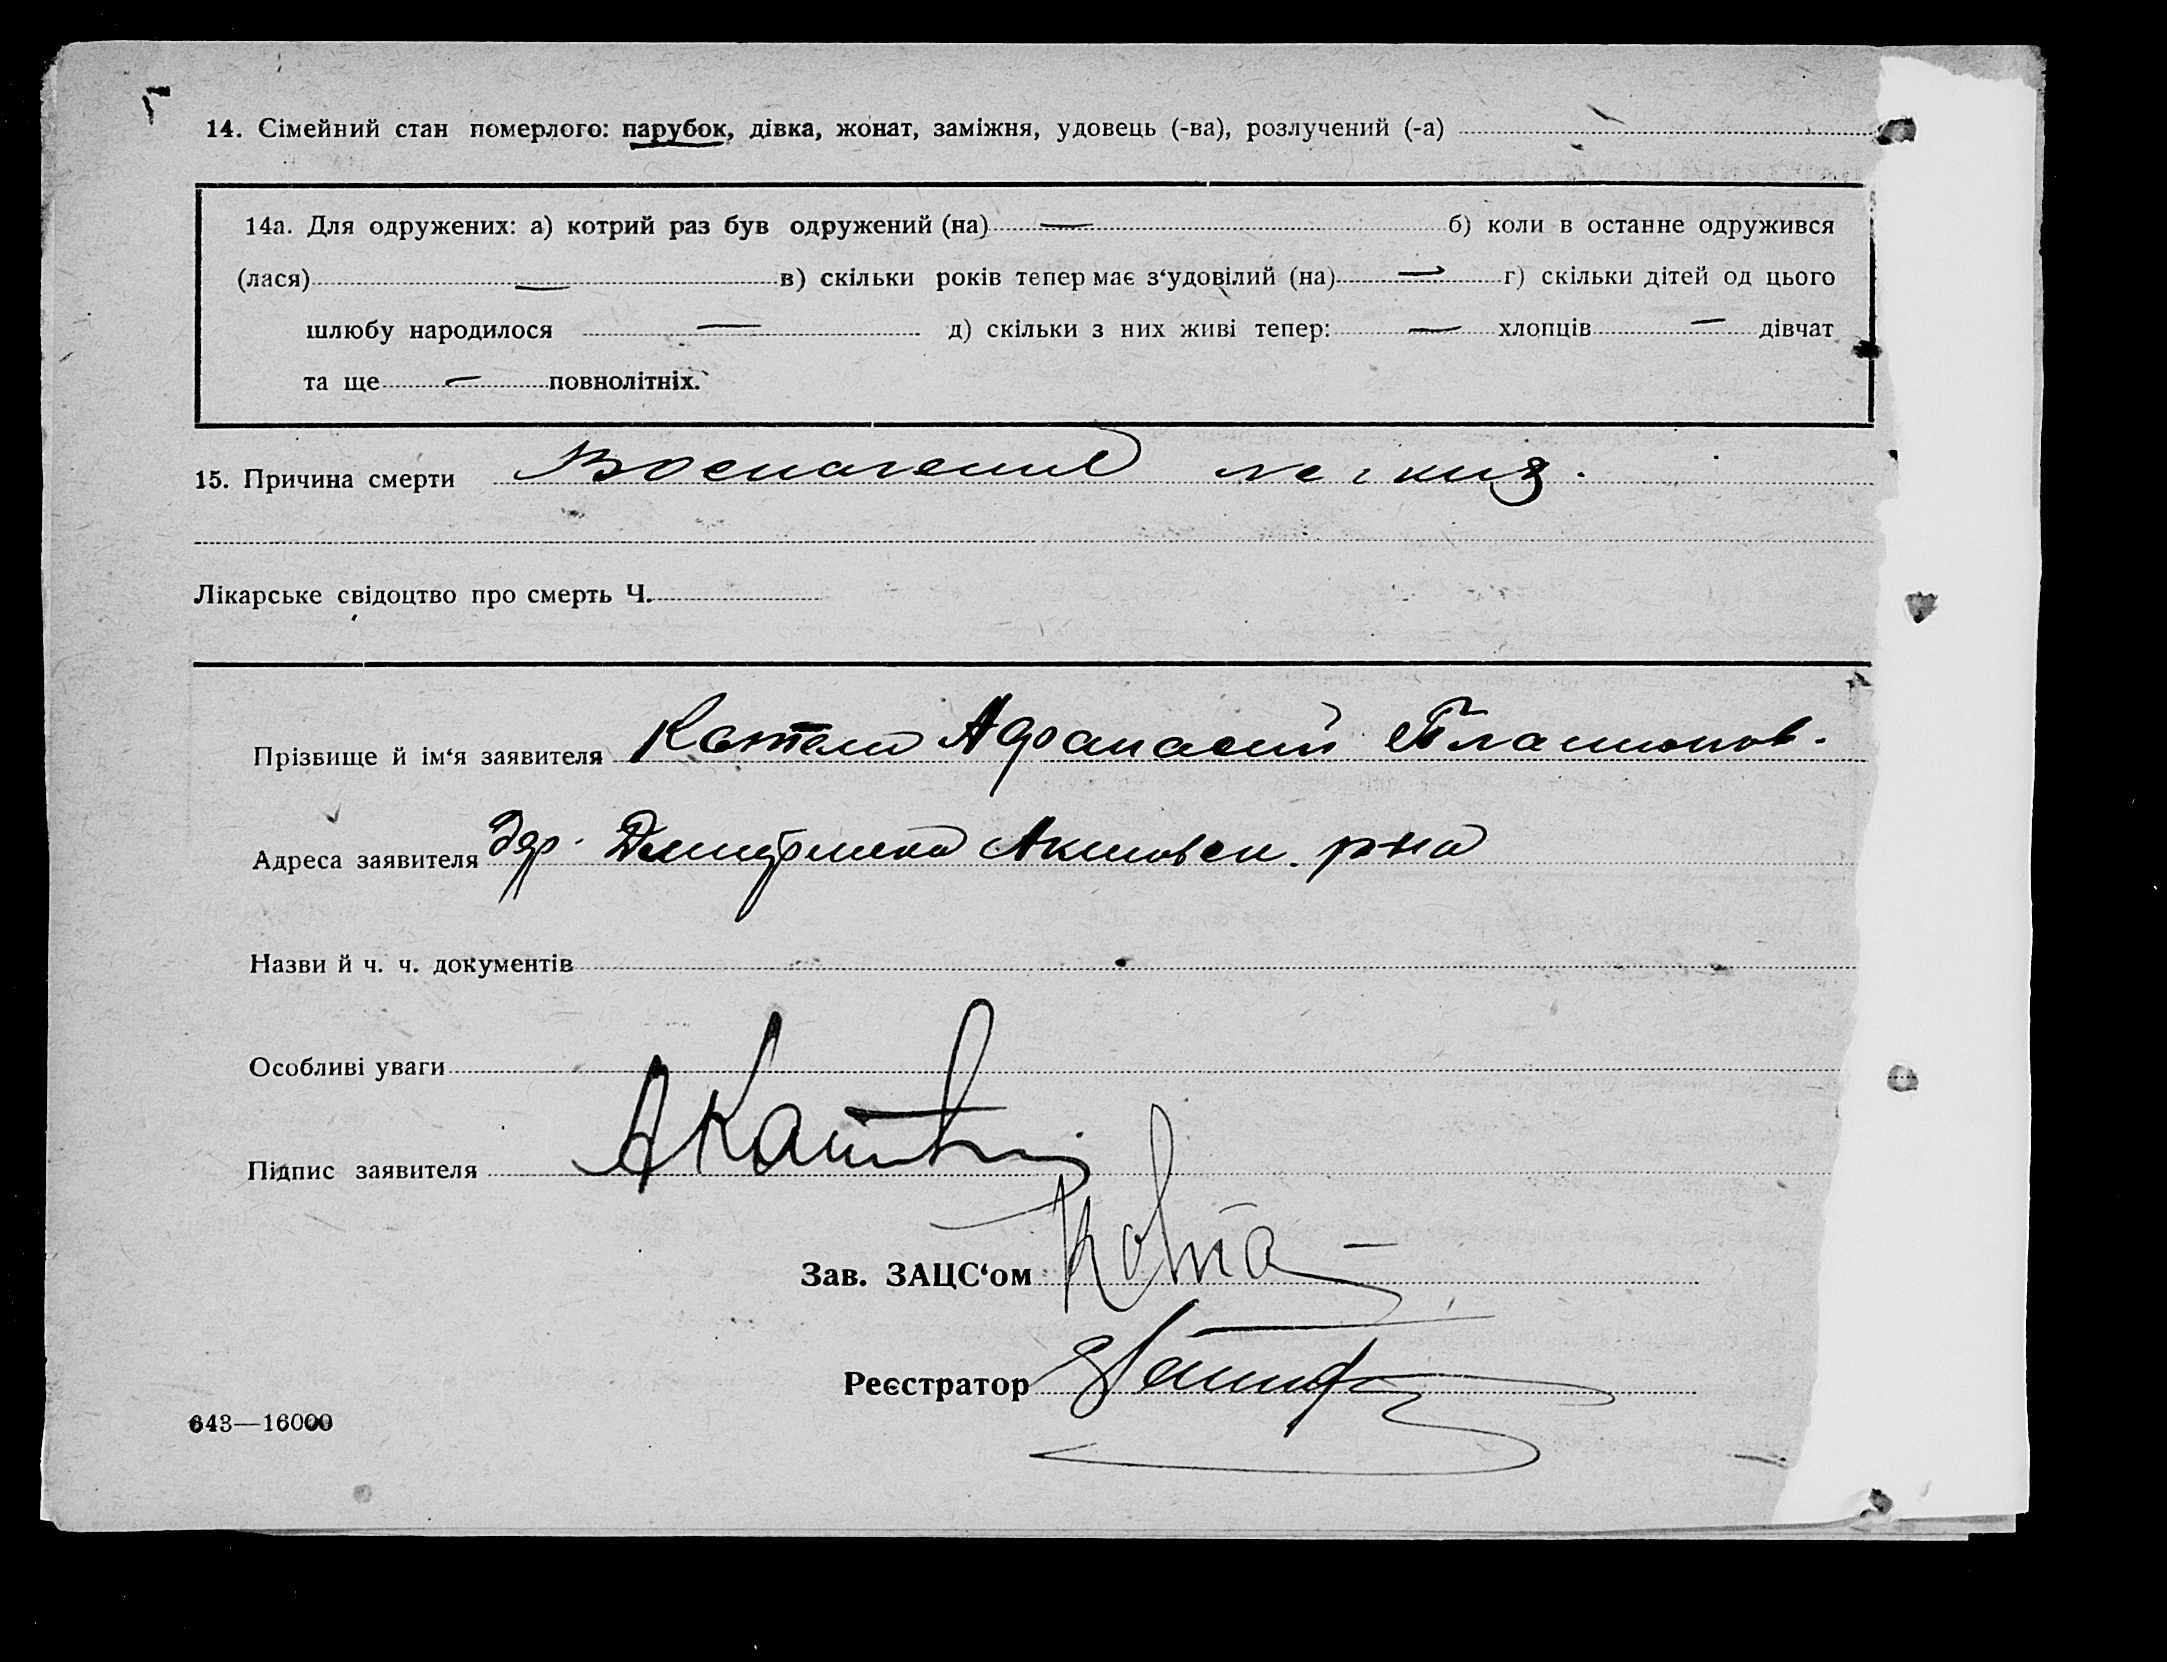 14. Сімейний стан померлого: парубок, дівка, жонат, заміжня, удовець (-ва), розлучений (-а)
14а. Для одружених: а) котрий раз був одружений (на) — б) коли в останне одружився
(лася) — в) скільки років тепер має з‘удовілий (на) — г) скільки дітей од цього
шлюбу народилося — д) скільки з них живі тепер: — хлопців — дівчат
та ще — повнолітніх.
15. Причина смерти Воспаление легких.
Лікарське свідоцтво про смерть Ч.
Прізвище й ім‘я заявителя Афанасий
Адреса заявителя р-на
Назви й ч. ч. документів
Особливі уваги
Підпис заявителя
Зав. ЗАЦС‘ом
Реєстратор
643—16000